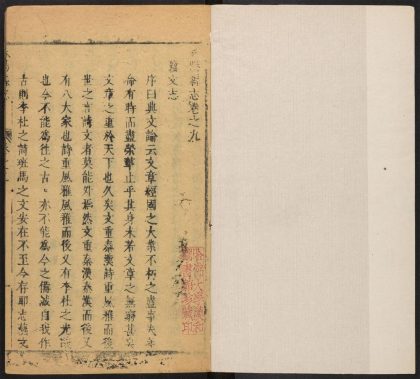 縣志卷之九
藝文志
序曰典文論云文章經國之大業不朽之盛事夫年
命有時而盡榮樂止乎其身未若文章之無窮甚矣
文章之重於天下也久矣文重秦漢詩重風雅而後
世之言詩文者莫能外然文重秦漢秦漢而後又
有八大家也詩重風雅風雅而後又有李杜之尤
也今不能為往之古亦不能為今之備誠自我作
古則李杜之詩班馬之文安在不至今存耶志藝文